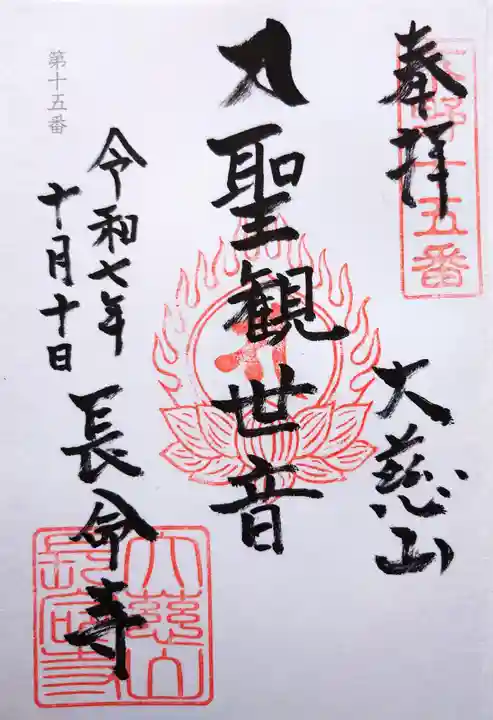 奉拝
十五番
大慈山
聖観世音
第十五番
令和七年
十月十日
長命寺
大慈山
長命寺